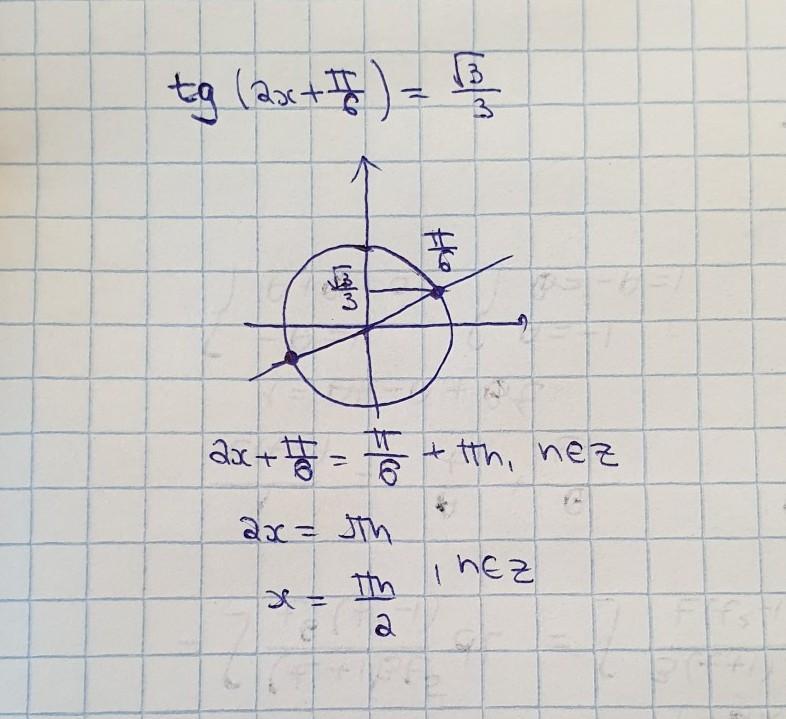 tg (2x + π/6) = √3/3
π/6
√3/3
2x + π/6 = π/6 + πn, n∈z
2x = πn
x = πn/2, n∈z